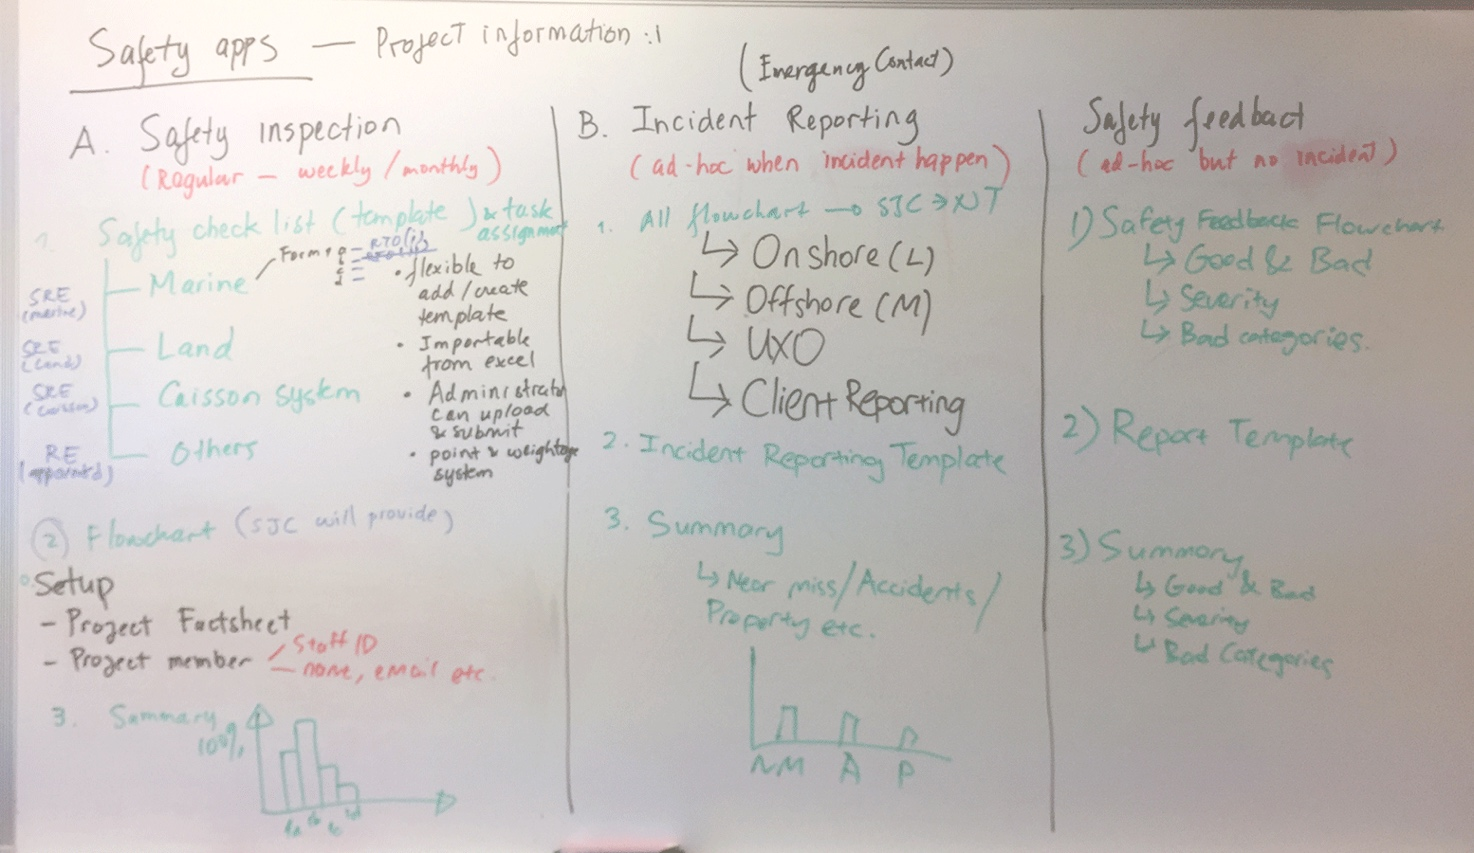 Safety apps — Project information :1
(Emergency Contact)
A. Safety inspection
(Regular - weekly / monthly)
1. Safety check list (template) & task
assignment
Marine
Form
SRE
(marine)
Land
SRE
(Land)
Caisson system
SRE
(caisson)
Others
RE
(appointed)
• flexible to
add / create
template
• Importable
from excel
• Administrator
can upload
& submit
• point & weightage
system
② Flowchart (SJC will provide)
Setup
- Project Factsheet
- Project member
Staff ID
name, email etc.
3. Summary
100%
1a 1b 1c 1d
B. Incident Reporting
(ad-hoc when incident happen)
1. All flowchart → SJC →
↳ Onshore (L)
↳ Offshore (M)
↳ UXO
↳ Client Reporting
2. Incident Reporting Template
3. Summary
↳ Near miss / Accidents /
Property etc.
NM A P
Safety feedback
(ad-hoc but no incident)
1) Safety Feedback Flowchart
↳ Good & Bad
↳ Severity
↳ Bad categories.
2) Report Template
3) Summary
↳ Good & Bad
↳ Severity
↳ Bad Categories